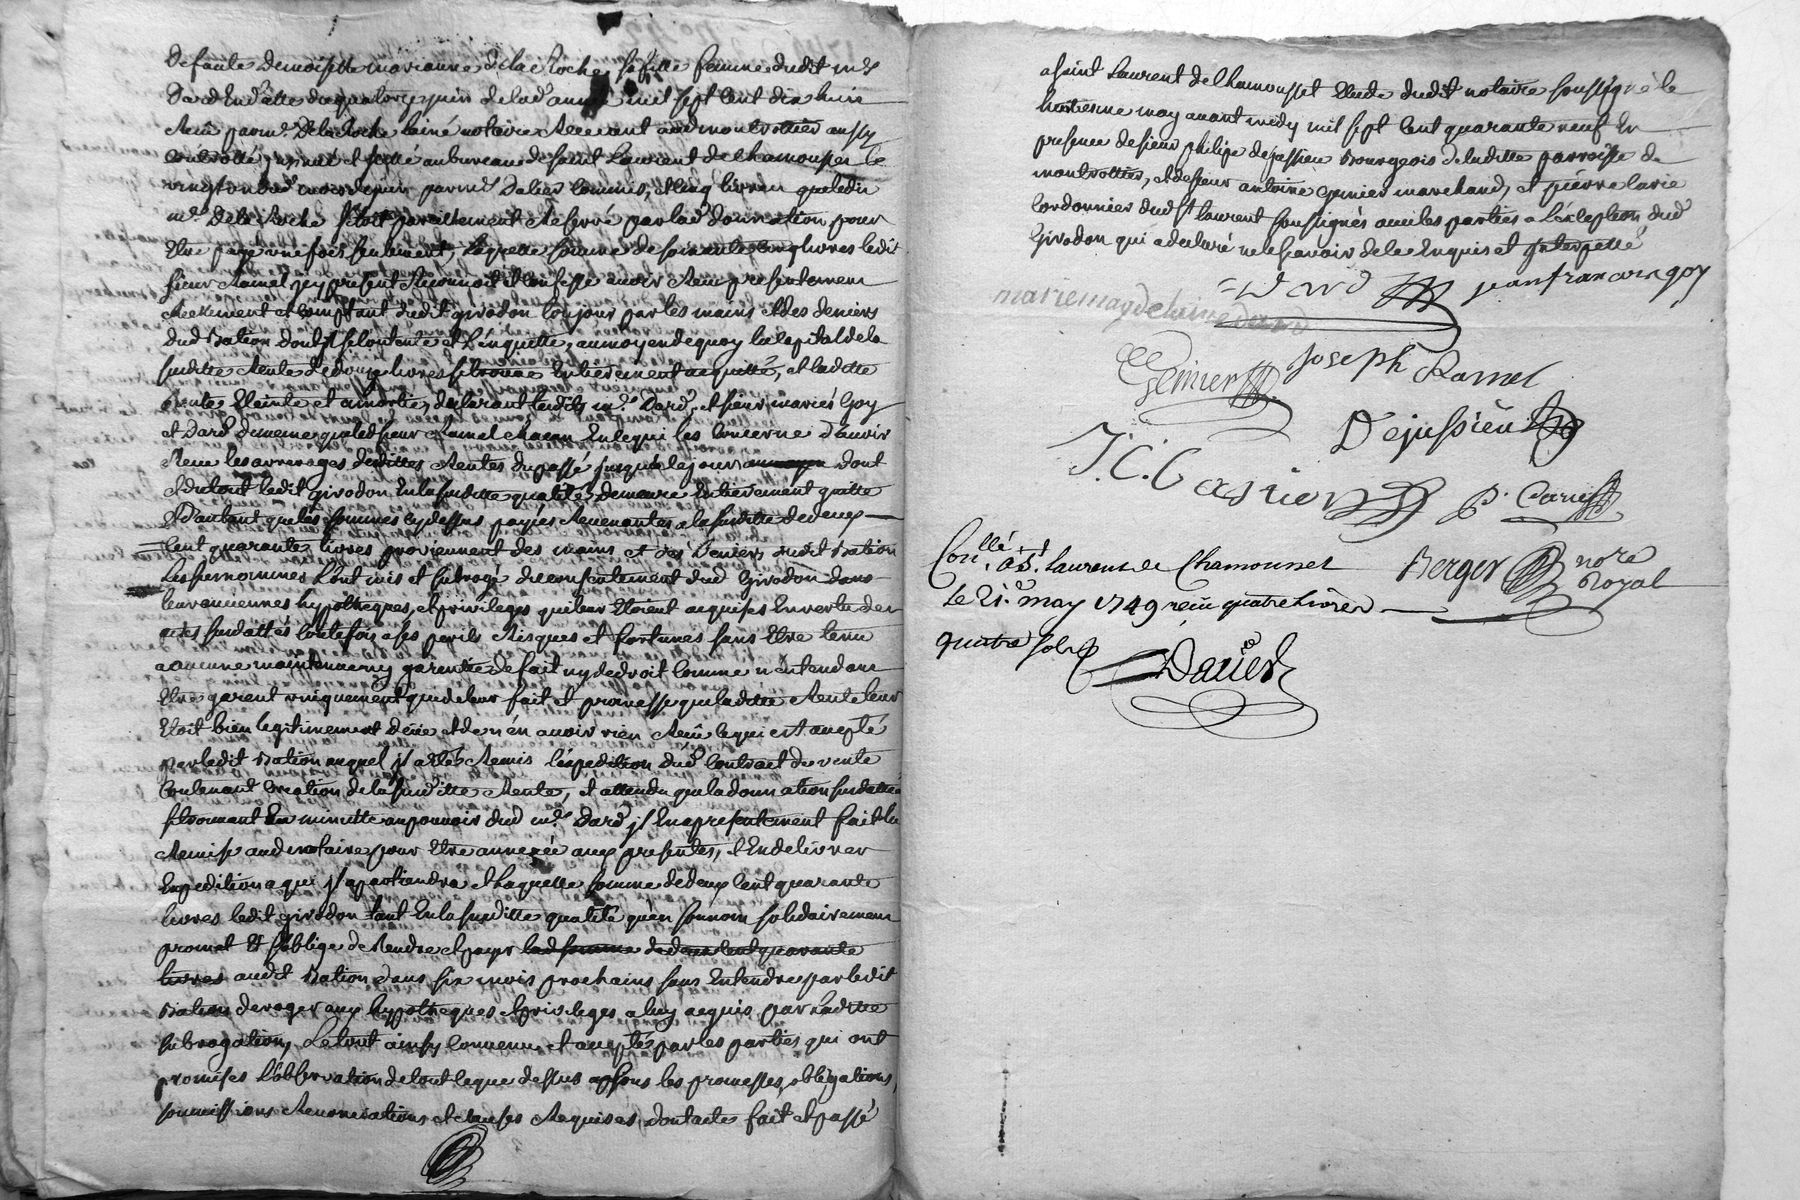 defunte Demoiselle marianne dela Roche sa fille femme dudit mr
Dard En datte du quatorze juin de lad. année mil sept Cent dix huit
Receu par mr. Dela Roche lainé notaire Recevant aud montrottier aussy
Controllé, et scellé au bureau de saint Laurent de Chamousset le
juin par mr Dalier Commis, et Cinq livres que ledit
mr. Dela Roche s'étoit pareillement Reservé par lad. donnation pour
Etre payé une fois seulement, laquelle somme de soixante Cinq livres ledit
sieur Ramel icy present Reconnoit et Confesse avoir Receu presentement
Reelement et Comptant dudit girodon toujour par les mains et des deniers
dud Bation dont il se Contente et l'enquitte, au moyen de quoy le Capital de la
susditte Rente de douze livres se trouve Entierement acquitté, et laditte
Rente Eteinte et amortie, declarant lesdits mr. Dard, et sieur mariés Goy
et Dard de meme que led sieur Ramel chacun En ce qui les Concerne d'avoir
Receu les arrerages desdittes Rentes du passé jusqu'a ce jour dont
et du tout ledit girodon En la susditte qualité demeure Entierement quitte
Et d'autant que les sommes cy dessus payées Revenantes a la susditte de deux
Cent quarante livres proviennent des mains et des Deniers dudit Bation
Les susnommés l'ont mis et subrogé du consentement dud Girodon dans
leurs anciennes hypotheques, et privileges qui leur Etoient acquises En vertu des
actes susdattés toutefois a ses perils Risques et fortunes sans Etre tenu
a aucune maintenue ny garentie de fait ny de droit Comme n'entendant
Etre garent uniquement que de leur fait et promesse que laditte Rente leur
Etoit bien legitimement Deüe et de n'en avoir rien Receu ce qui est accepté
par ledit Bation auquel il a été Remis l'expedition dud Contract de vente
Contenant Creation de la susditte Rente, et attendu que la donnation susdattée
se trouvant En minutte au pouvoir dud mr. Dard il En a presentement fait la
Remise aud notaire pour Etre annexée aux presentes, et En delivrer
Expedition a qui il apartiendra et laquelle somme de deux Cent quarante
livres ledit girodon tant En la susditte qualité qu'en son nom solidairement
promet Et s'oblige de Rendre et payer lad somme de deux Cent quarante
livres audit Bation dans six mois prochains sans Entendre par ledit
Bation deroger aux hypotheques et privileges a luy acquis par laditte
subrogation, Le tout ainsy Convenu et accepté par les parties qui ont
promises l'observation de tout ce que dessus les promesses, obligations,
soumissions Renonciations et clauses Requises, dont acte fait et passé
a saint Laurent de Chamousset Etude dudit notaire soussigné le
huitieme may avant midy mil sept Cent quarante neuf En
presence de sieur philipe dejussieu Bourgeois de laditte parroisse de
montrottier, et de sieur antoine genier marchand, et pierre Carie
Cordonnier dud St laurent soussignés avec les parties a l'exception dud
Girodon qui a declaré ne le sçavoir de ce Enquis et interpellé
Dard jeanfrancoisgoy
mariemagdelainedard
Genier joseph Ramel
Dejussieu
J. C. Bastion P. Carie
Conllé. a St. laurent de Chamousset Berger nore
Royal
le 21. may 1749 reçu quatre livres
quatre sols
Dalier